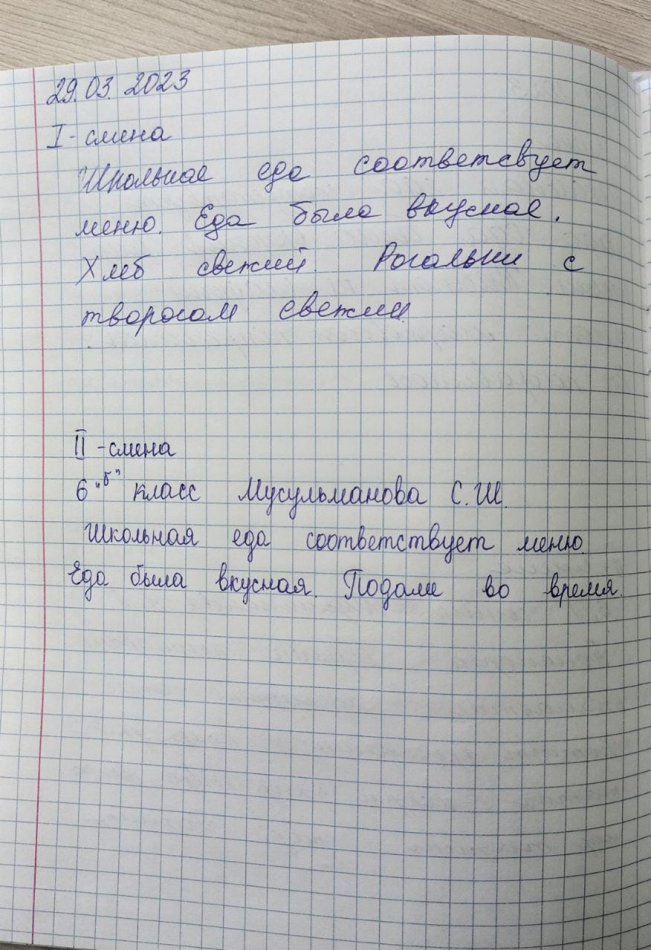 29.03.2023
I-смена
Школьная еда соответсвует
меню. Еда была вкусная.
Хлеб свежий. Рогалики с
творогом свежии.
II-смена
6 "б" класс Мусульманова С.Ш.
Школьная еда соответствует меню.
Еда была вкусная. Подали во время.